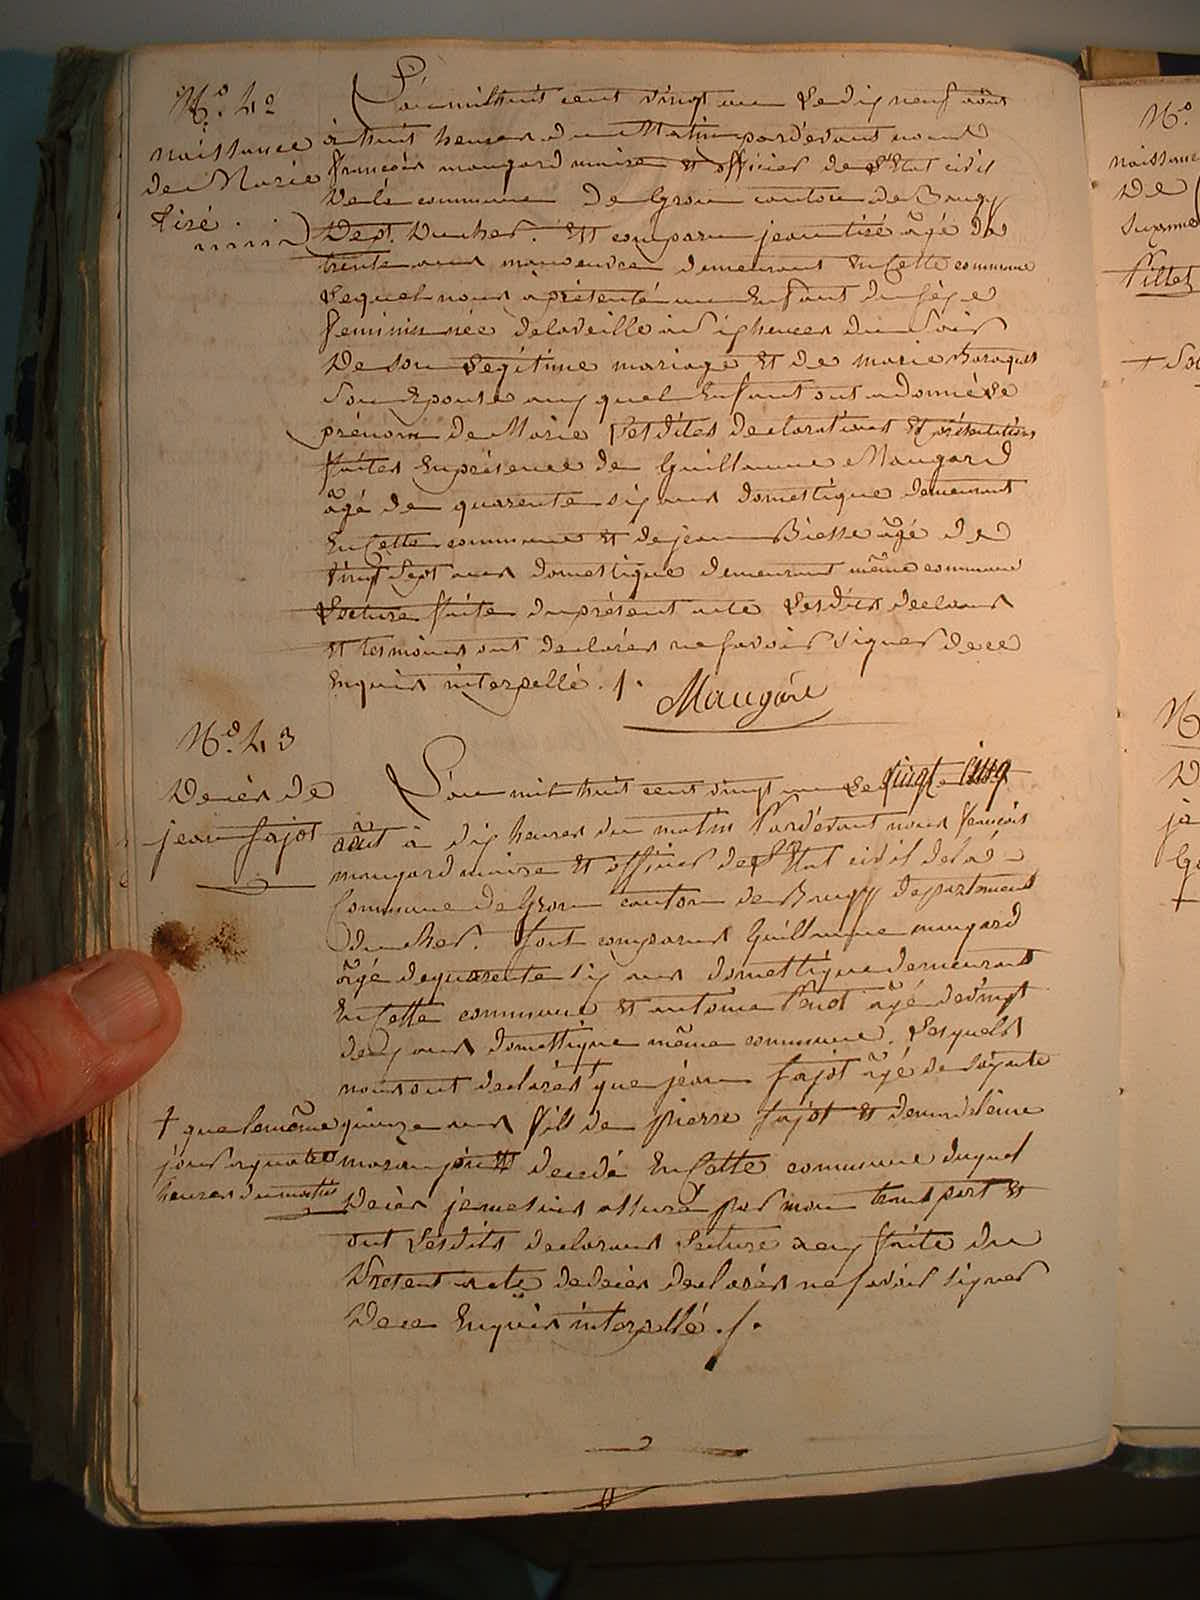 N.º 42
naissance
de Marie
tixé . .
L'an mil huit cent vingt un le dix neuf août
à huit heures du Matin pardevant nous
françois maugard maire et officier de l'Etat civil
de la commune de Gron canton de Baugy
Dept. du cher. Est comparu jean tixé âgé de
trente ans manoeuvre demeurant En Cette commune
Lequel nous a présenté un Enfant du séxe
feminin née de la veille à six heures du soir
de son Légitime mariage Et de marie
son Epouse auquel Enfant ont a donné Le
prénom de Marie Lesdites declarations Et présentations
faites En présence de Guillaume Maugard
âgé de quarente six ans domestique demeurant
En Cette commune Et de jean Biesse âgé de
vingt sept ans domestique demeurant même commune
Lecture faite du présent acte Lesdits declarans
et temoins ont declarés ne savoir signer de ce
Enquis interpellé ./.
Maugard
N.º 43
Decès de
jean fajot
L'an mil huit cent vingt un Le vingt cinq
août à dix heures du matin Pardevant nous françois
maugard maire Et officier de l'Etat civil de la
Commune de Gron canton de Baugy departement
du cher. sont comparus Guillaume maugard
âgé de quarente six ans domestique demeurant
En Cette commune Et antoine âgé de vingt
deux ans domestique même commune. Lesquels
nous ont declarés que jean fajot âgé de soixante
quinze ans fils de pierre fajot Et de madelaine
decedé En Cette commune duquel
decès je me suis assuré par mon transport Et
ont Lesdits declarans Lecture a eux faite du
Présent acte de decès declarés ne savoir signer
De ce Enquis interpellé ./.
+ que le même
jour a quatre
heures du matin
N.º
naissance
De
Suzanne
Pillet